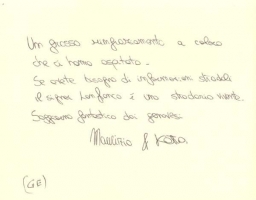 Un grosso ringraziamento a coloro
che ci hanno ospitato.
Se avete bisogno di informazioni stradali
il signor Lanfranco è uno stradario vivente.
Soggiorno fantastico da genovesi.
Maurizio &
(GE)